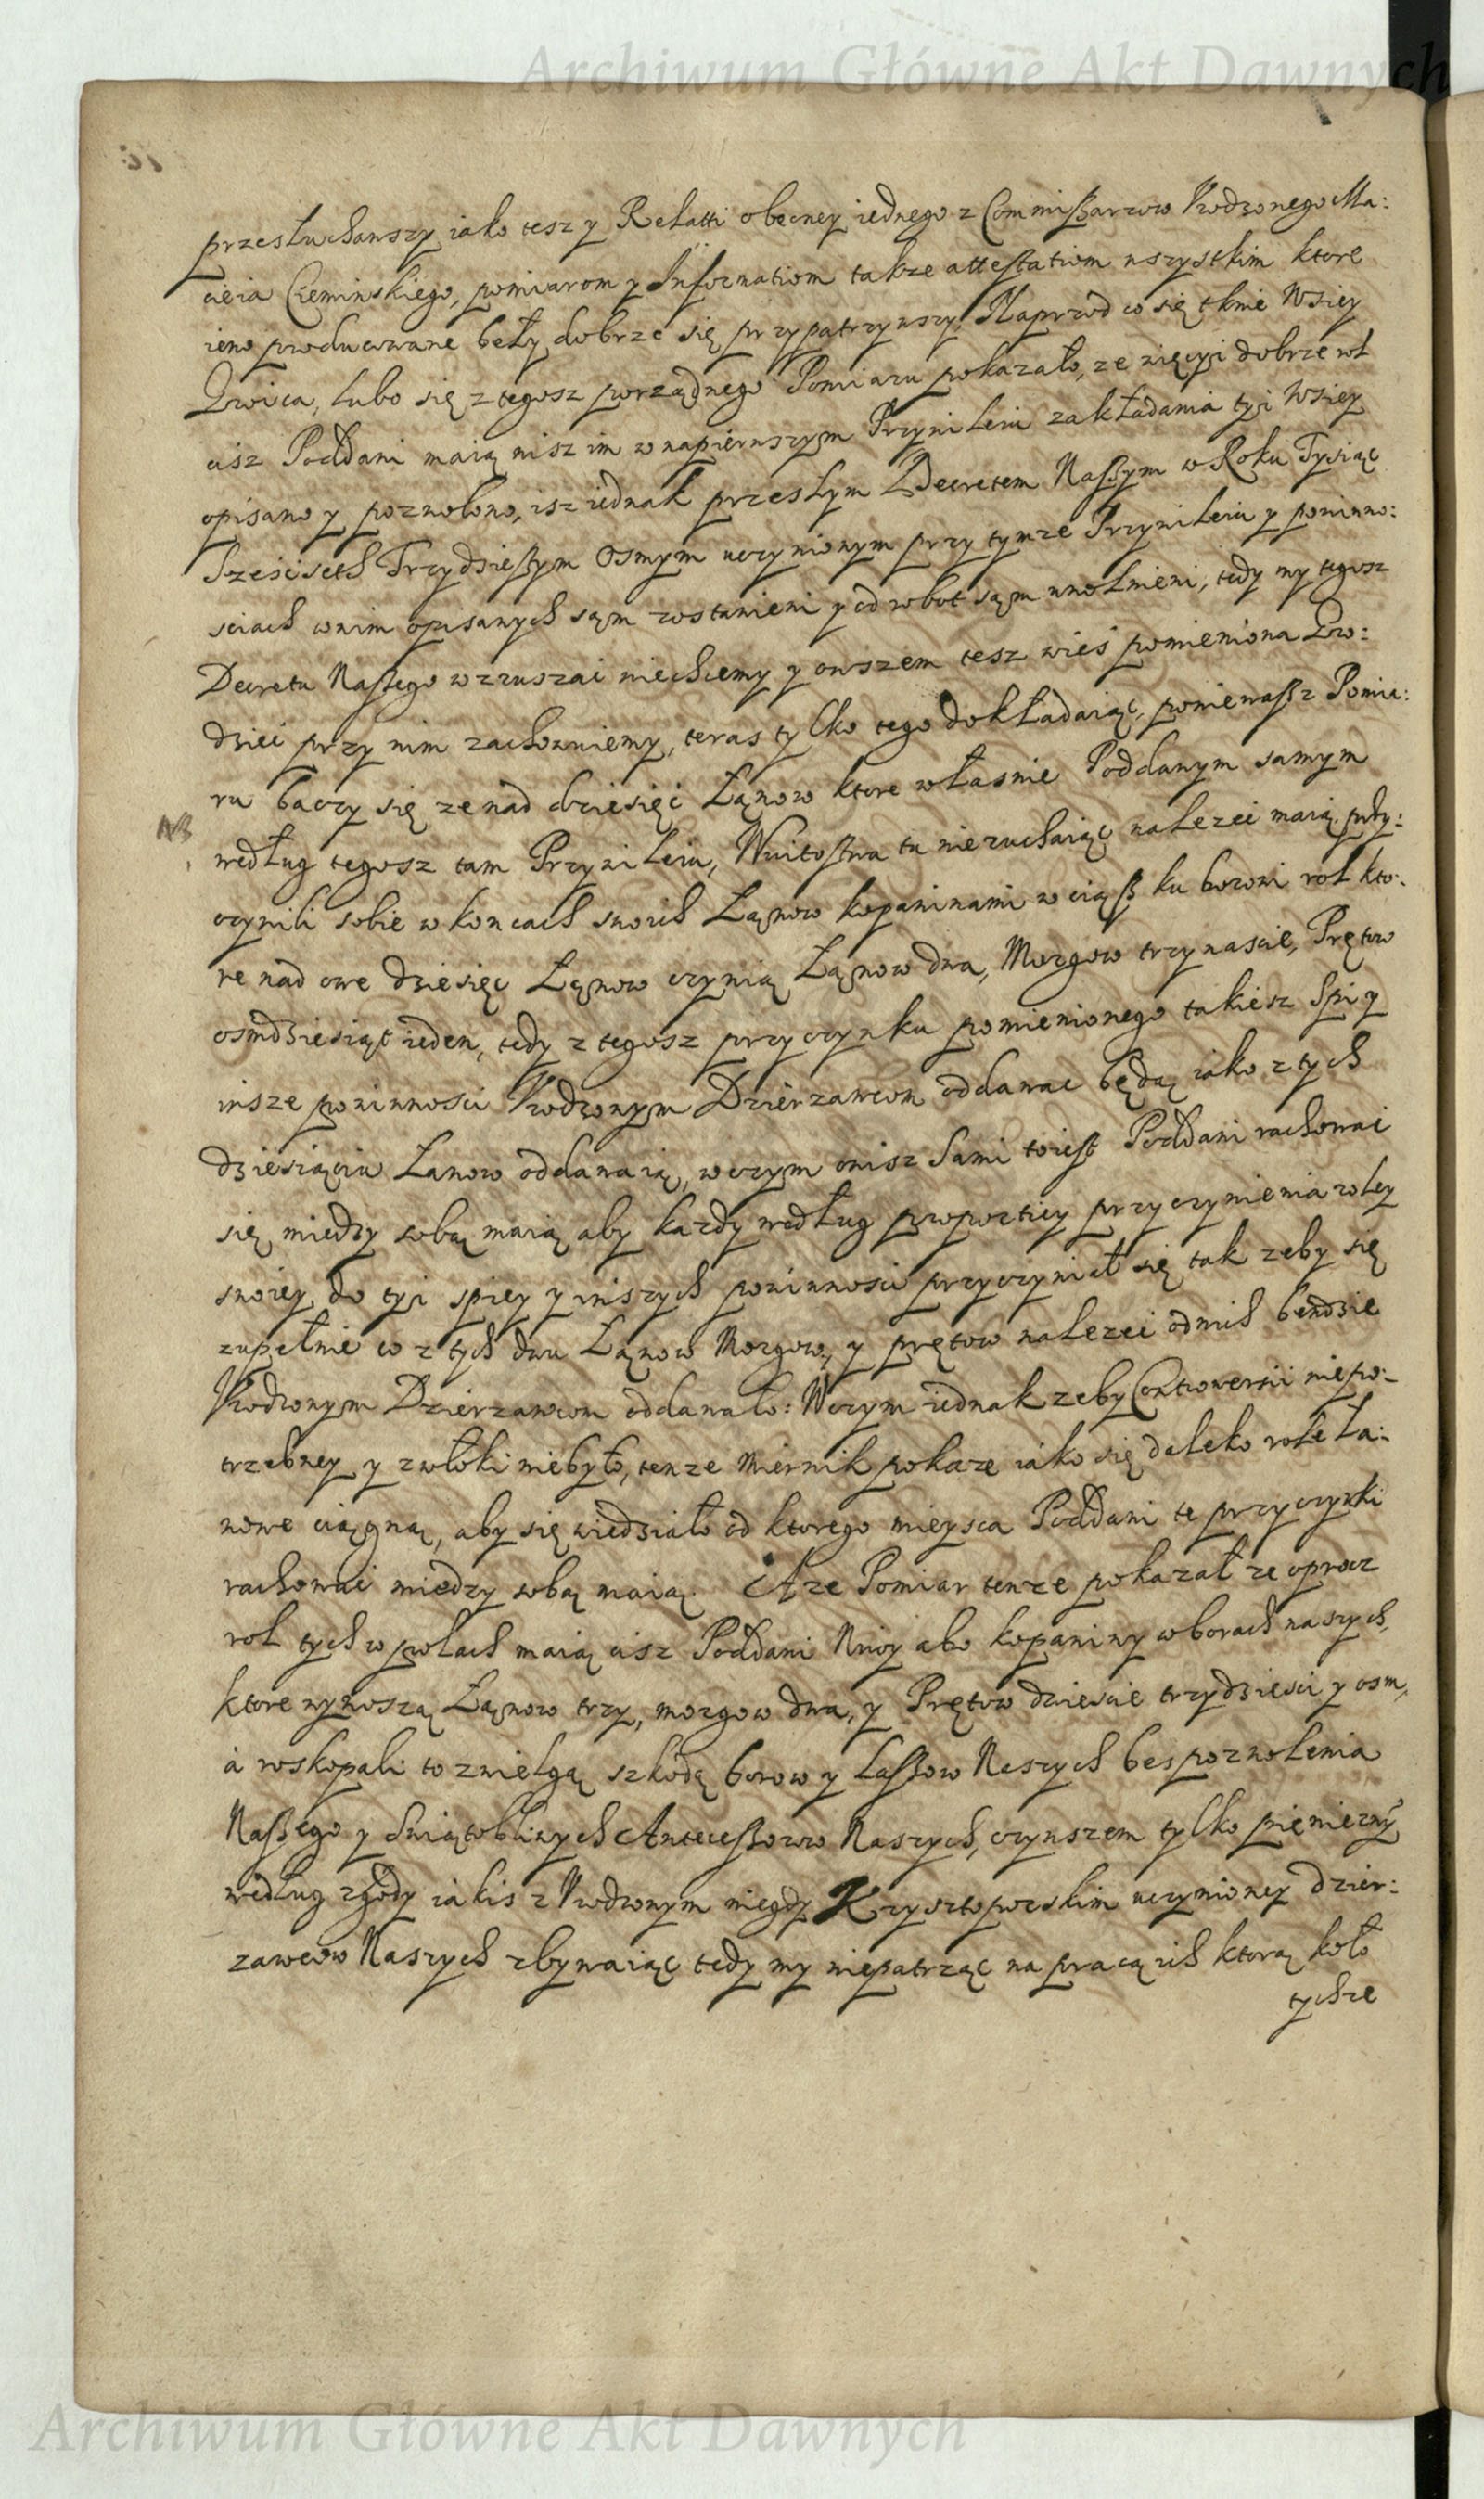 Archiwum Główne Akt Dawnych
przesłuchawszy iako tesz y Relatti obecney iednego z Commißarzow Vrodzonego Ma:
cieia Cieminskiego, pomiarom y Informatiom także attestatiom wszystkim ktore
ieno producowane beły dobrze się przypatrzywszy. Naprzod co się tknie Wsiey
lubo się z tegosz porządnego Pomiaru pokazało, ze więcyi dobrze rol
cisz Poddani maią nisz im w napierwszym Przywileiu zakładania tyi Wsiey
opisano y pozwolono, isz iednak przeszłym Decretem Naszym w Roku Tysiąc
Sześćseth Trzydziestym Osmym uczynionym przy tymze Przywileiu y powinno:
sciach wnim opisanych sąm zostawieni y od robot sąm uwolnieni, tedy my tegosz
Decretu Naßego wzruszać niechcemy y owszem tesz wieś pomieniona
przy nim zachowuiemy, teras tylko tego dokładaiąc, poniewaßz Pomia:
ru baczy się ze nad dziesięć Łąnow ktore własnie Poddanym samym
NB
według tegosz tam Przywileiu, Wuitostwa tu nieruchaiąc nalezeć maią przy:
czynili sobie w koncach swoich Łąnow kopaninami w ciąß ku borowi rol kto:
re nad owe dziesięć Łąnow czynią Łąnow dwa, Morgow trzynascie, Prętow
osmdziesiąt ieden, tedy z tegosz przyczynku pomienionego takiesz Spi y
insze powinnosci Vrodzonym Dzierzawcom oddawac będą iako z tych
dziesiąciu Łanow oddawaią, w czym onisz Sami toiest Poddani rachowac
się miedzy sobą maią aby kazdy według proportiey przyczynienia roley
swoiey do tyi spiey y inszych powinnosci przyczyniał się tak zeby się
zupełnie co z tych dwu Łąnow Morgow, y prętow nalezeć odnich bendzie
Vrodzonym Dzierzawcom oddawało: Wczym iednak zeby Controwersii niepo:
trzebney y zwłoki niebyło, tenze Miernik pokaze iako się daleko role Ła:
nowe ciągną, aby się wiedziało od ktorego mieysca Poddani te przyczynki
rachowac miedzy sobą maią. A ze Pomiar tenze pokazał ze oprocz
rol tych w polach maią cisz Poddani Niwy abo kopaniny w borach naszych,
ktore wynoszą Łąnow trzy, morgow dwa, y Prętow dziescie trzydziesci y osm,
a roskopali to z wielgą szkodą borow y Laßow Naszych bes pozwolenia
Naßego y Swiątobliwych Antecessorow Naszych, czynszem tylko pieniezny
według zgody iakis z Vrodzonym niegdy Krzysztoporskim uczynioney dzier:
zawcow Naszych zbywaiąc tedy my niepatrząc na pracą ich ktorą koło
tychze
Archiwum Główne Akt Dawnych